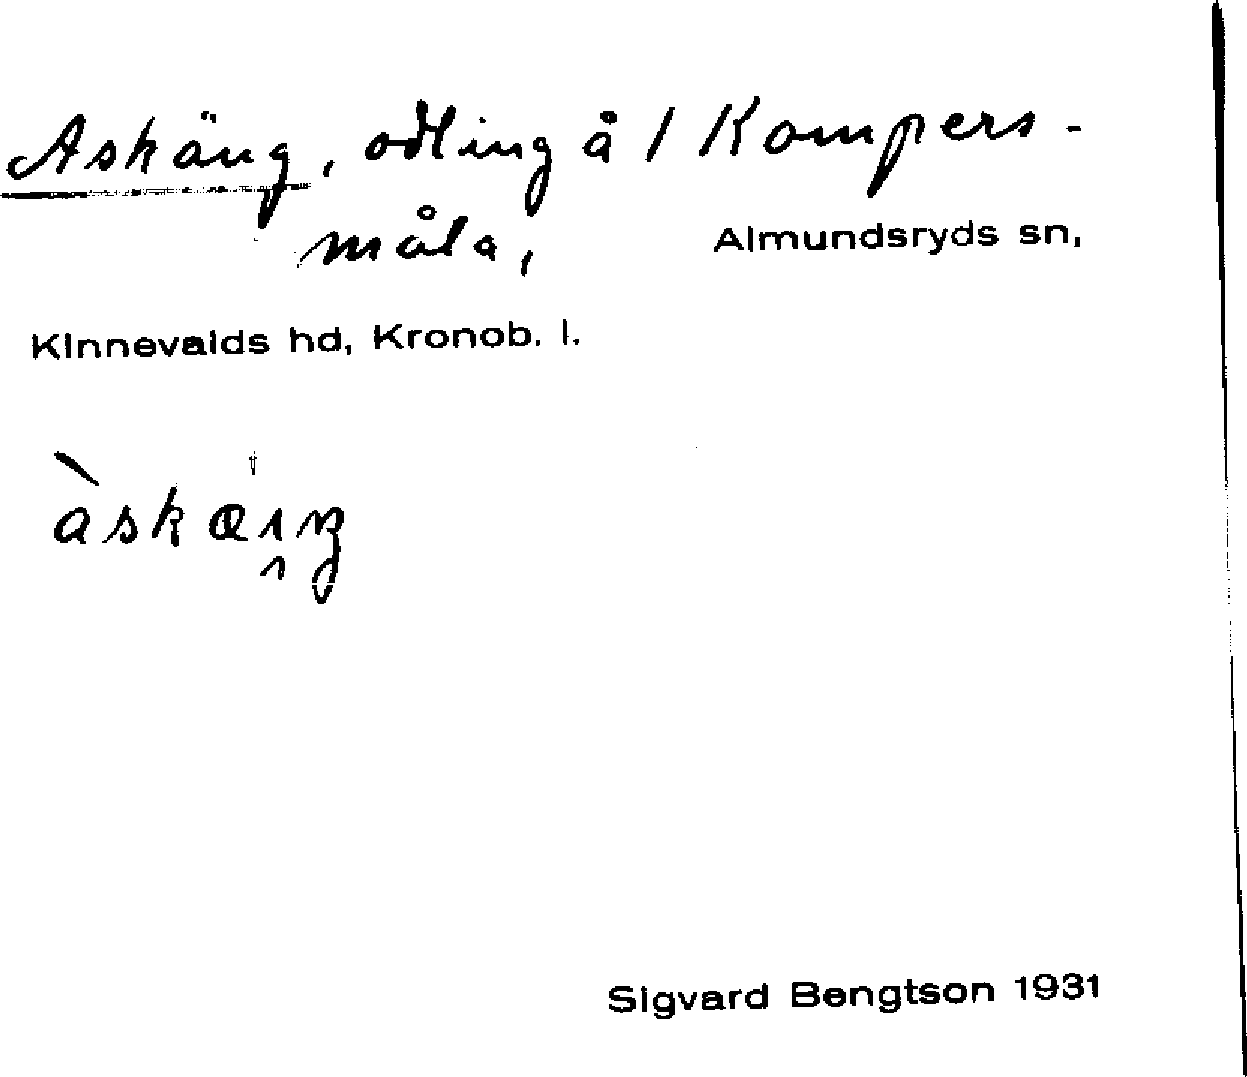 Askäng, odling å 1 Kompers-
måla, Almundsryds sn,
Kinnevalds hd, Kronob. l.
àskæŋ
Sigvard Bengtson 1931